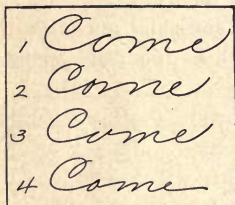 1 Come
2 Corne
3 Cume
4 Came